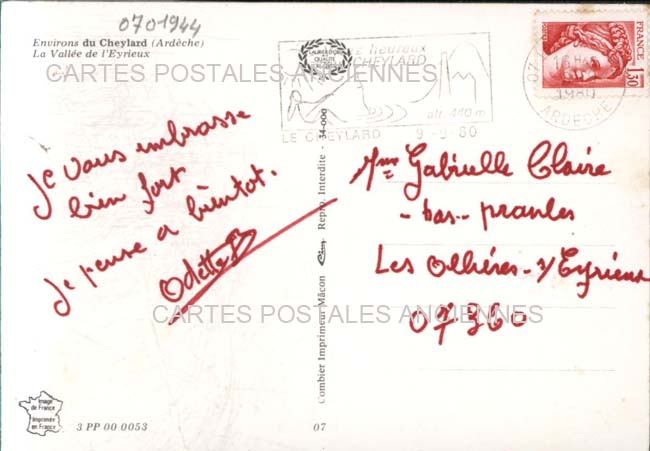 0701944
Environs du Cheylard (Ardèche)
La Vallée de l'Eyrieux
CARTES POSTALES ANCIENNES
Je vous embrasse
bien fort
je pense a bientot.
Odette
heureux
CHEYLARD
alt. 440 m
LE CHEYLARD 9-9-80
FRANCE
POSTES
1,30
1980
ARDECHE
Combier Imprimeur Mâcon Repro. Interdite - 34-000
Mme Gabrielle Claire
- bas - pranles
Les Olhéres - s/Eyrieux
07360
CARTES POSTALES ANCIENNES
Image
de France
Imprimée
en France
3 PP 00 0053
07